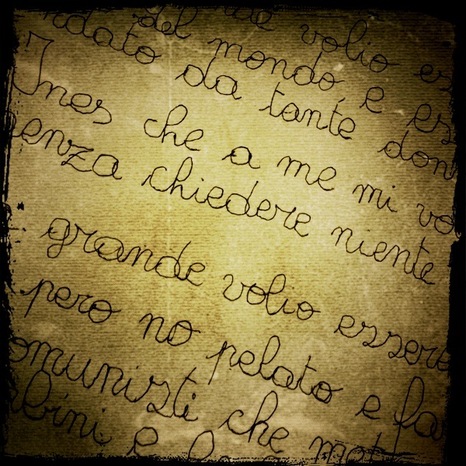 de volio es
del mondo e ess
ndato da tante don
Ines che a me mi vo
senza chiedere niente
grande volio essere
pero no pelato e fa
omunisti che
mbini e